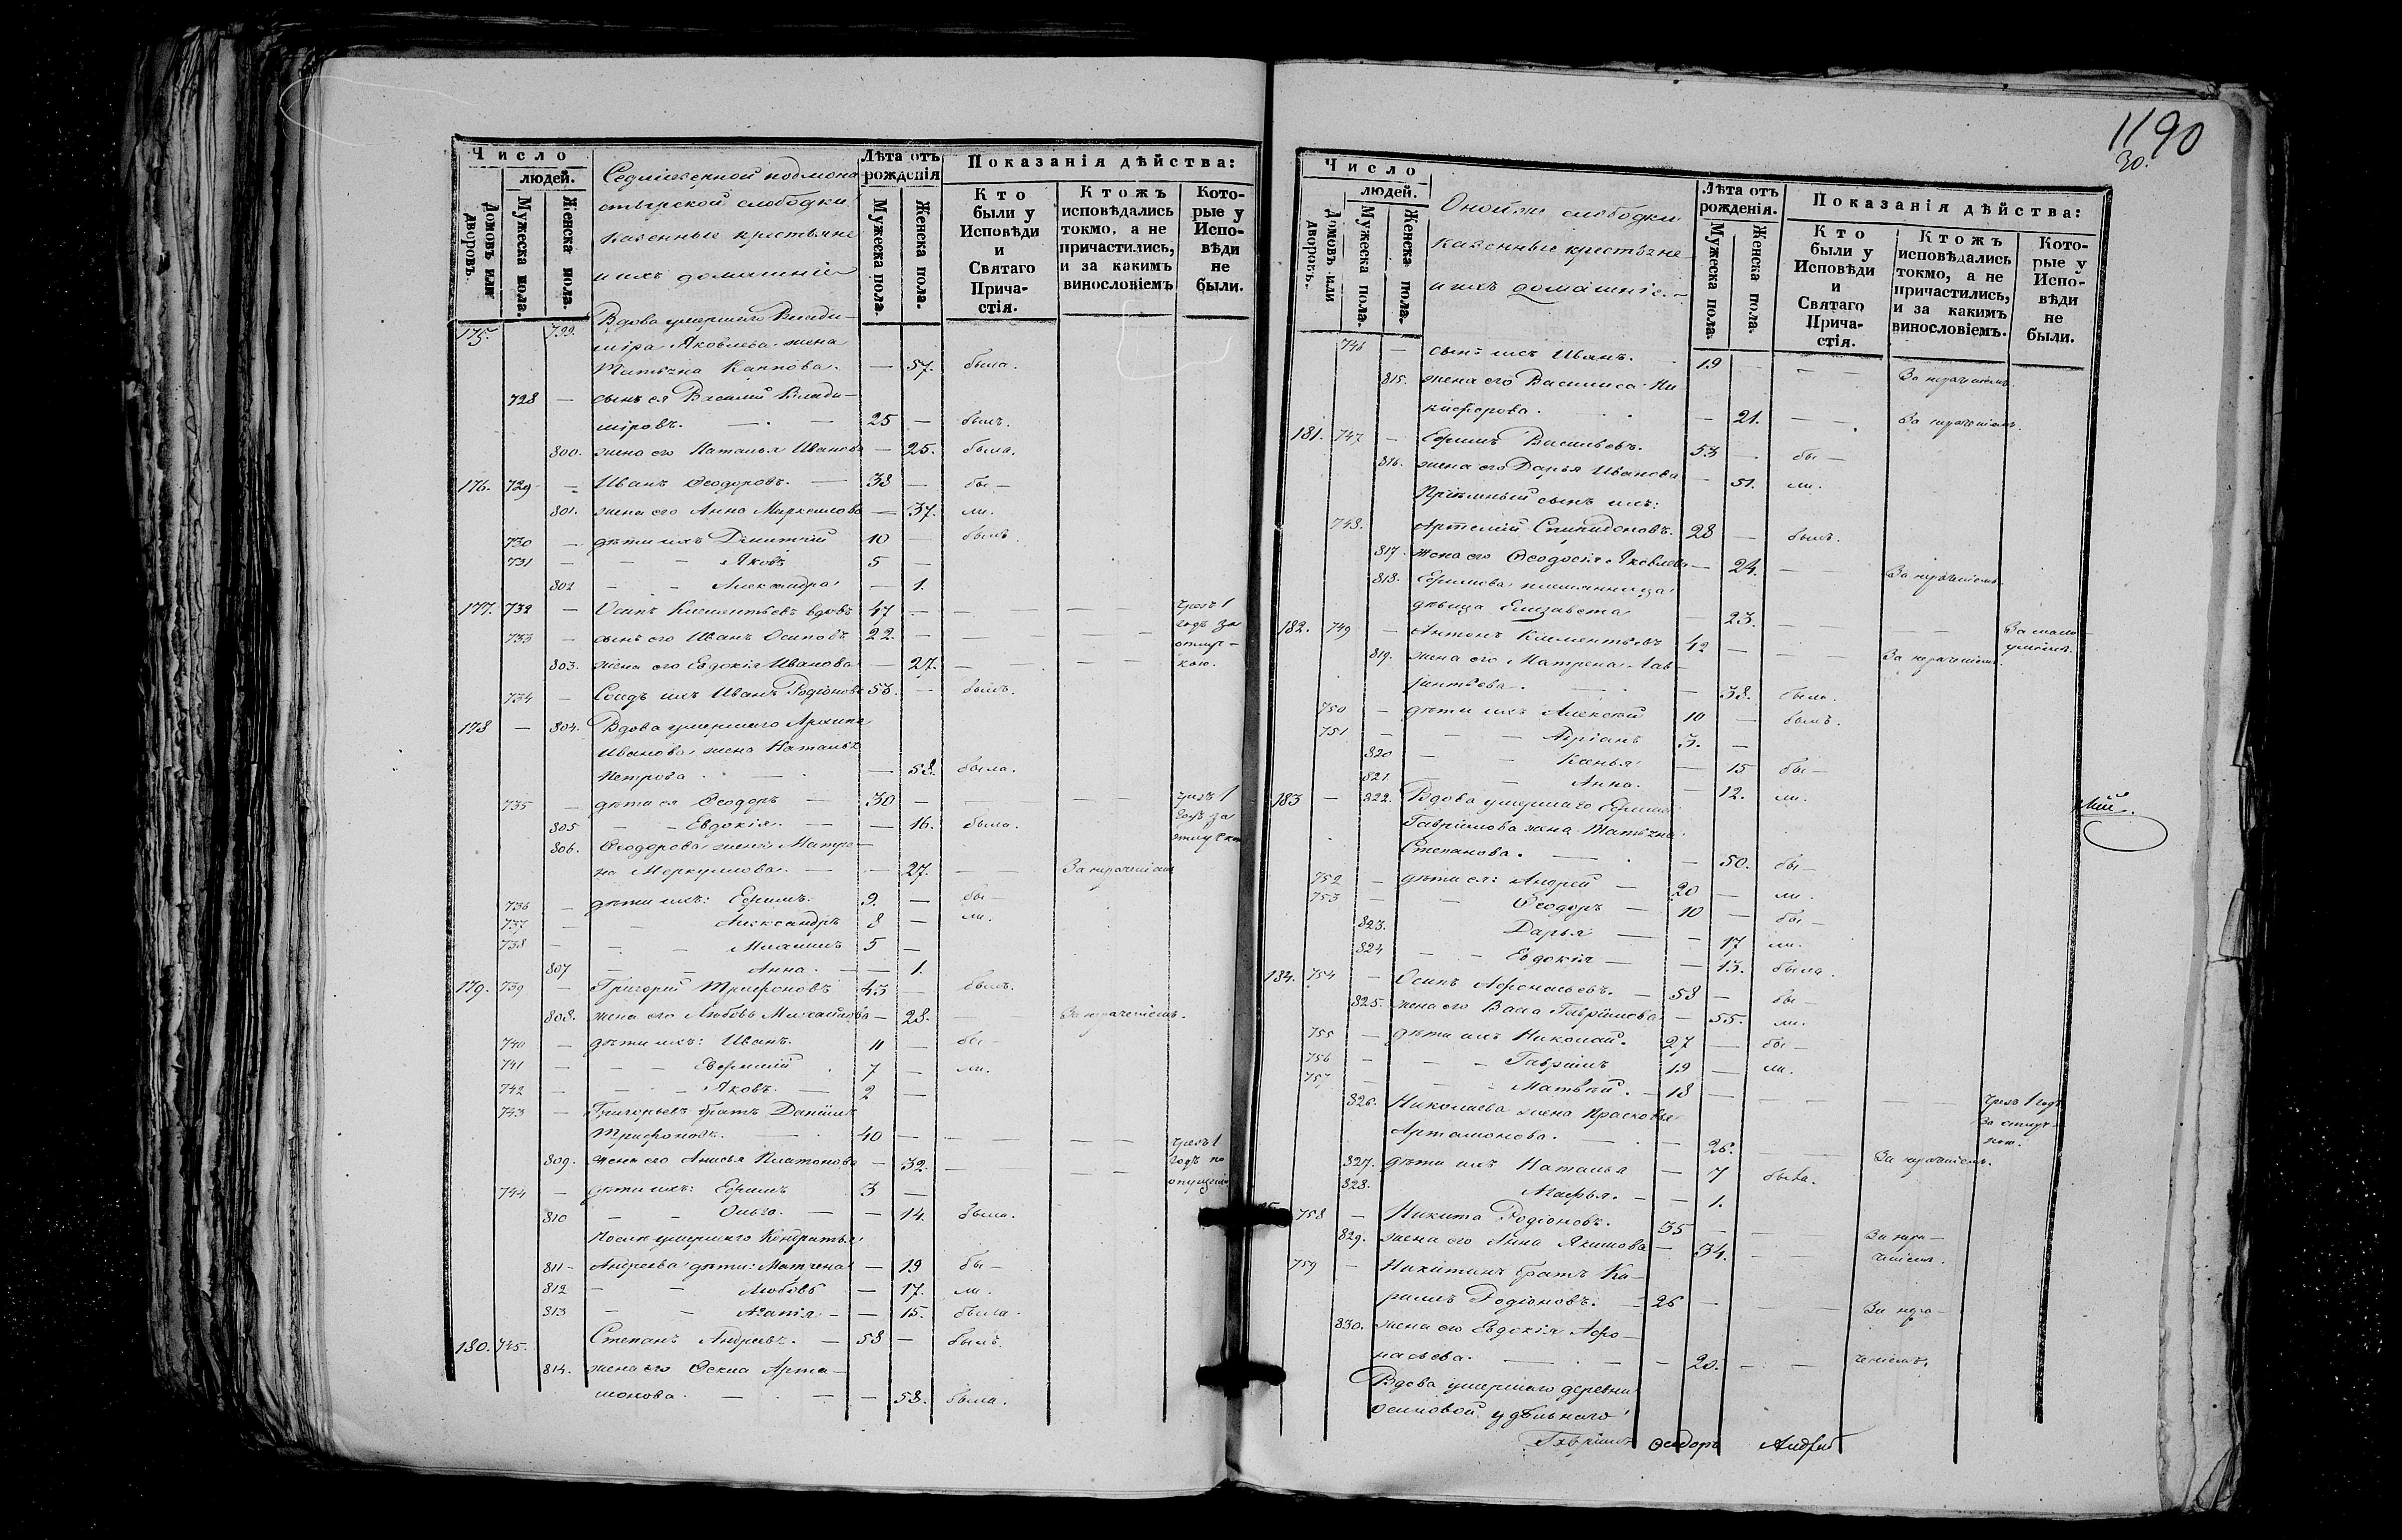 Число
людей.
Домовъ или дворовъ.
Мужеска пола.
Женска пола.
Седміезерной подмона
стырской слободки
казенные крестьяне
и ихъ домашніе
Лѣта отъ рожденія
Мужеска пола.
Женска пола.
Показанія дѣйства:
Кто были у Исповѣди и Святаго Прича-стія.
Ктожъ исповѣдались токмо, а не причастились, и за какимъ винословіемъ
Кото-рые у Испо-вѣди не были.
175. 799. Вдова умершаго Влади-
міра Яковлева жена
Татьяна Карпова. — 57. была.
728 — сынъ ея Василій Влади-
міровъ. — 25 — былъ.
800. жена его Наталья Иванова — 25. была.
176. 729 — Иванъ Ѳеодоровъ. — 38 — бы —
801. жена его Анна — 37. ли.
730 — дѣти ихъ Димитрій 10 — былъ.
731 — — — Яковъ 5 —
802 — — Александра — 1.
177. 732 — Осипъ Климентьевъ вдовъ 47 — — — — чрезъ 1
733 — сынъ его Иванъ Осиповъ 22. — — — годъ за
отлуч-
803. жена его Евдокія Иванова — 27. — — — кою.
734 — Сосѣдъ ихъ Иванъ Родіоновъ 53. — былъ.
178 — 804. Вдова умершаго Архипа
Иванова жена Наталья
Петрова. — — 58. была.
735 — дѣти ея Ѳеодоръ — 30 — — — — чрезъ 1
805 — — Евдокія. — — 16. была. годъ за
806. Ѳеодорова жена Матре- отлучкою
на Меркулова. — — 27. — — За нрачтіемъ
736 — дѣти ихъ: Ефимъ. 9. — бы —
737 — — Александръ 8 — ли.
738 — — — Михаилъ 5 —
807 — — Анна. — — 1.
179. 739 — Григорій Трифоновъ 43 — былъ.
808. жена его Любовь Михайлова — 28. — —
740 — дѣти ихъ: Иванъ. 11 — бы —
741 — — — Евфимій 7 — ли.
742 — — — Яковъ. — 2 —
743 — Григорьевъ братъ Даніилъ
Трифоновъ. — 40 — — — — — чрезъ 1
809. жена его Анисья Платонова — 32. — — — годъ по
744 — дѣти ихъ: Ефимъ 3 — опущенію
810 — — Ольга. — — 14. была.
Послѣ умершаго Кондратья
811 — Андреева дѣти: Матрена — 19 бы —
812 — — Любовь — 17. ли.
813 — — Агапія — — 15. была.
180. 745. Степанъ Андреевъ. — 58 — былъ.
814. жена его Ѳекла Арта-
монова. — — — 58. была.
1190
30.
Число
людей.
Домовъ или дворовъ.
Мужеска пола.
Женска пола.
Оной же слободки
казенные крестьяне
и ихъ домашніе. —
Лѣта отъ рожденія.
Мужеска пола.
Женска пола.
Показанія дѣйства:
Кто были у Исповѣди и Святаго Прича-стія.
Ктожъ исповѣдались токмо, а не причастились, и за какимъ винословіемъ.
Кото-рые у Испо-вѣди не были.
746 — сынъ ихъ Иванъ. 19 — — —
815. жена его Василиса Ни-
кифорова. — 21. — —
181. 747 — Ефимъ Васильевъ. 53 — бы —
816. жена его Дарья Иванова — 51. ли.
Пріемный сынъ ихъ:
748. Артемій Спиридоновъ. 28 — былъ.
817. жена его Ѳеодосія Яковлева — 24. — —
818. Ефимова племянница
дѣвица Елизавета — 23. — — — За мало-
умiемъ.
182. 749 — Антонъ Климентьевъ 42 — — —
819. жена его Матрена Лав-
рентьева. — 38. была.
750 — дѣти ихъ Алексѣй 10 — былъ.
751 — — — Адріанъ 3. —
820 — — Ксенья — 15 бы —
821. — — Анна. — 12. ли.
183 — 822. Вдова умершаго Ефима
Гавріилова жена Татьяна
Степанова. — — 50. бы —
752 — дѣти ея: Андрей — 20 — ли.
753 — — Ѳеодоръ — 10 — бы —
823. Дарья — — 17 ли.
824 — — Евдокія — — 13. была.
184. 754 — Осипъ Афонасьевъ. — 58 — бы —
825. жена его Васса Гавріилова — 55. ли.
755 — дѣти ихъ Николай. 27 — бы —
756 — — — Гавріилъ 19 — ли.
757 — — — Матвѣй. — 18 — — — — чрезъ 1 годъ
826. Николаева жена Прасковья за отлуч-
Артамонова. — — 26. — — кою.
827. дѣти ихъ Наталья — 7 была.
828. Агафья. — — 1.
758 — Никита Родіоновъ. 35 — — —
829. жена его Анна Якимова — 34. — —
759 — Никитинъ братъ Ка-
рилъ Родіоновъ. — 26 — — —
830. жена его Евдокія Афо-
насьева. — — — 20. — —
Вдова умершаго деревни
Осиновой удѣльнаго
Гавріилъ Ѳеодоръ Андрей